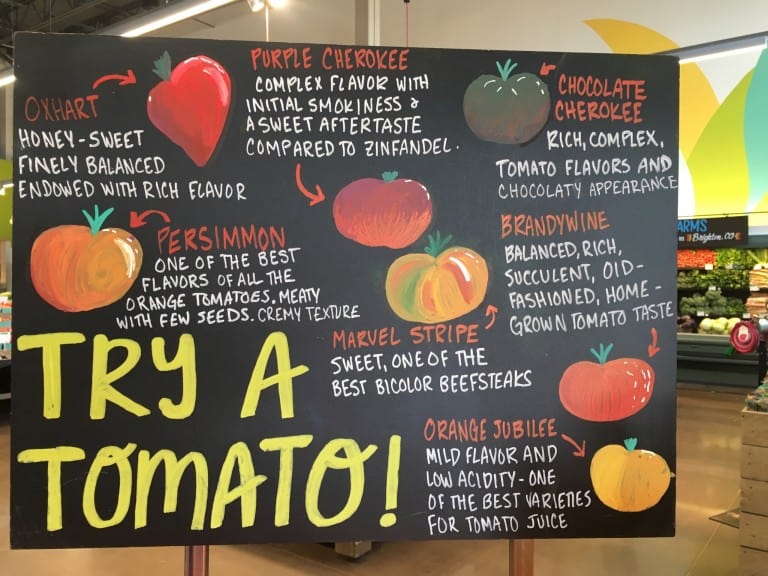 OXHART
HONEY-SWEET
FINELY BALANCED
ENDOWED WITH RICH FLAVOR
PURPLE CHEROKEE
COMPLEX FLAVOR WITH
INITIAL SMOKINESS &
A SWEET AFTERTASTE
COMPARED TO ZINFANDEL.
CHOCOLATE
CHEROKEE
RICH, COMPLEX,
TOMATO FLAVORS AND
CHOCOLATY APPEARANCE
PERSIMMON
ONE OF THE BEST
FLAVORS OF ALL THE
ORANGE TOMATOES. MEATY
WITH FEW SEEDS. CREMY TEXTURE
BRANDYWINE
BALANCED, RICH,
SUCCULENT, OLD-
FASHIONED, HOME-
GROWN TOMATO TASTE
MARVEL STRIPE
SWEET, ONE OF THE
BEST BICOLOR BEEFSTEAKS
TRY A
TOMATO!
ORANGE JUBILEE
MILD FLAVOR AND
LOW ACIDITY-ONE
OF THE BEST VARIETIES
FOR TOMATO JUICE
ARMS
Brighton, CO